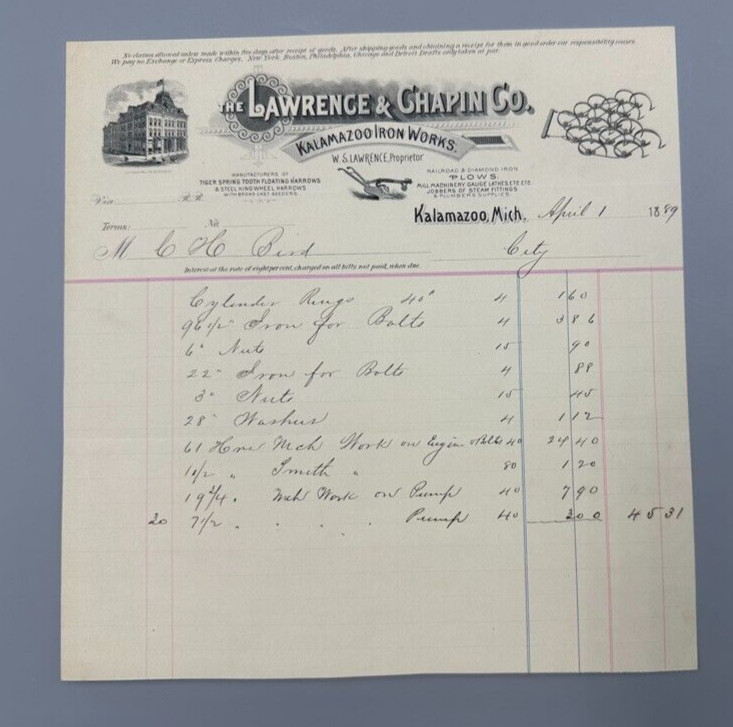 No claims allowed unless made within five days after receipt of goods. After shipping goods and obtaining a receipt for them in good order our responsibility ceases.
We pay no Exchange or Express Charges. New York, Boston, Philadelphia, Chicago and Detroit Drafts only taken at par.
THE LAWRENCE & CHAPIN CO.
KALAMAZOO IRON WORKS.
W. S. LAWRENCE, Proprietor
MANUFACTURERS OF
TIGER SPRING TOOTH FLOATING HARROWS
& STEEL KING WHEEL HARROWS
WITH BROAD CAST SEEDERS.
RAILROAD & DIAMOND IRON
PLOWS.
MILL MACHINERY GAUGE LATHES, ETC. ETC.
JOBBERS OF STEAM FITTINGS
& PLUMBERS SUPPLIES.
Via R.R.
Kalamazoo, Mich. April 1 1889
Terms: No
M C H Bird City
Interest at the rate of eight per cent, charged on all bills not paid, when due.
Cylinder Rings 40# 4 1 60
96 1/2" Iron for Bolts 4 3 86
6" Nuts 15 90
22" Iron for Bolts 4 88
3" Nuts 15 45
28" Washers 4 1 12
61 Hrs Mch Work on Engine & Bolts 40 24 40
1 1/2 " Smith " 80 1 20
19 3/4 " Mch Work on Pump 40 7 90
20 7 1/2 " " " " Pump 40 3 00 45 31